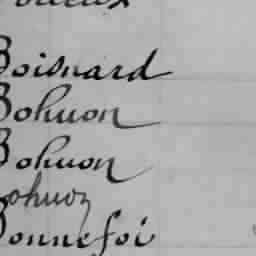 Boisnard
Bohuon
Bohuon
Bohuon
Bonnefoi